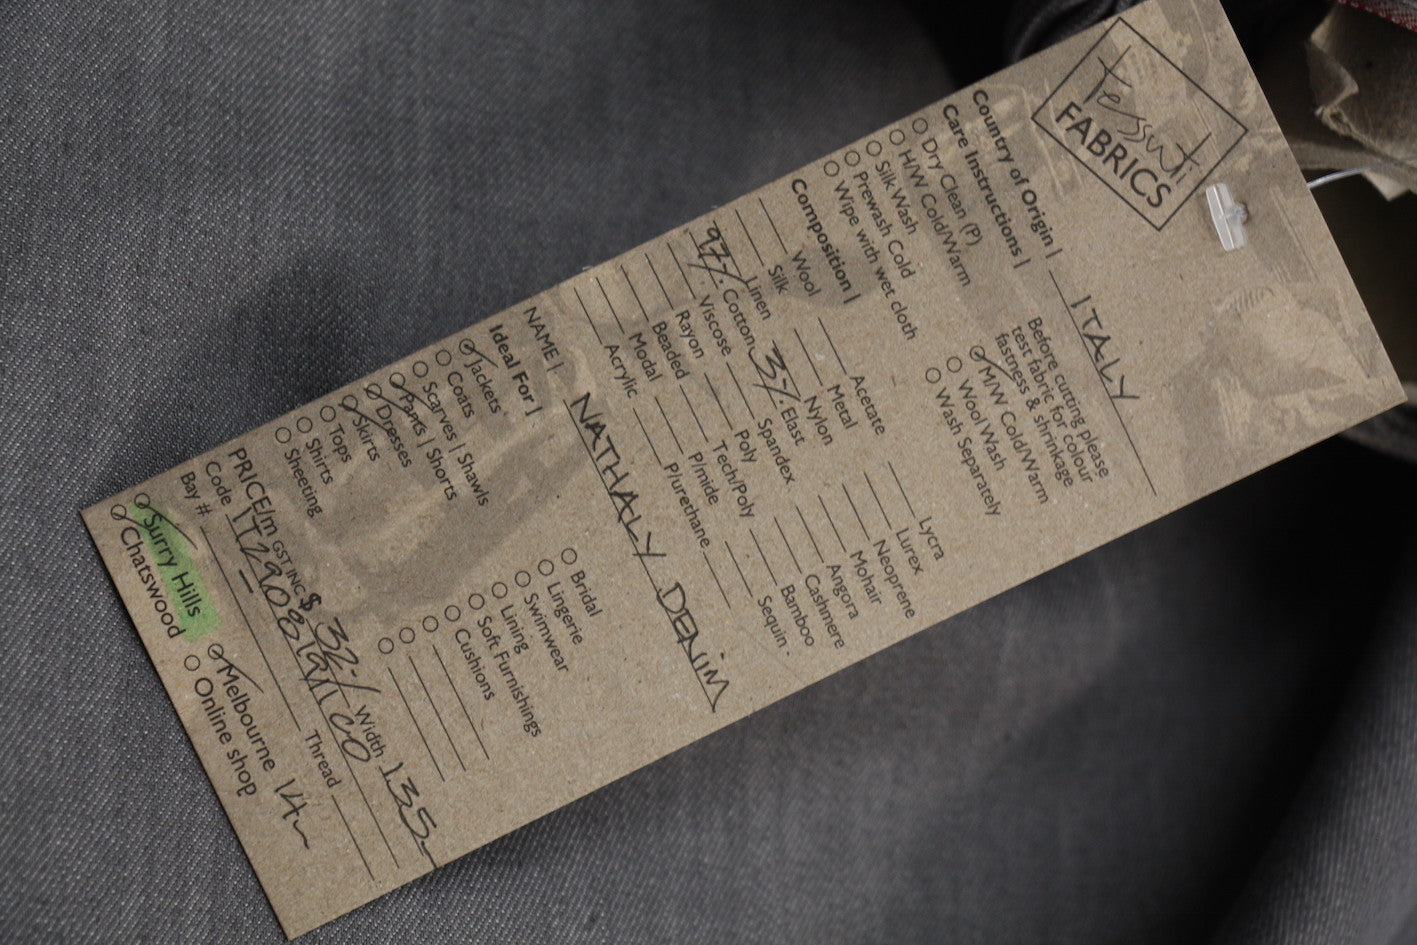 Tessuti
FABRICS
Country of Origin | ITALY
Care Instructions |
Before cutting please
test fabric for colour
fastness & shrinkage
Dry Clean (P)
H/W Cold/Warm
Silk Wash
Prewash Cold
Wipe with wet cloth
M/W Cold/Warm
Wool Wash
Wash Separately
Composition |
Wool Acetate Lycra
Silk Metal Lurex
Linen Nylon Neoprene
97% Cotton 3% Elast Mohair
Viscose Spandex Angora
Rayon Poly Cashmere
Beaded Tech/Poly Bamboo
Modal P/mide Sequin
Acrylic P/urethane
NAME | NATHALY DENIM
Ideal For |
Jackets Bridal
Coats Lingerie
Scarves | Shawls Swimwear
Pants | Shorts Lining
Dresses Soft Furnishings
Skirts Cushions
Tops
Shirts
Sheeting
PRICE/m GST INC $ 32.-/ Width 135
Code
Bay # Thread
Surry Hills Melbourne 14m
Chatswood Online shop